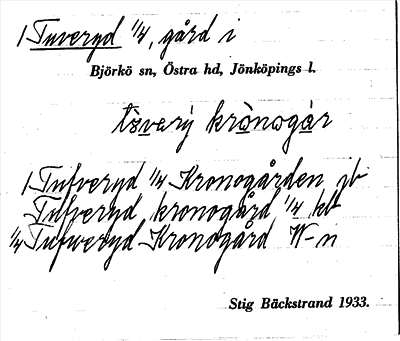 1 Tuveryd 1/4, gård i
Björkö sn, Östra hd, Jönköpings l.
krònogár
1 Tufveryd 1/4 Kronogården jb
Tufveryd kronogård 1/4
1/4 Tufweryd Kronogård W-n
Stig Bäckstrand 1933.